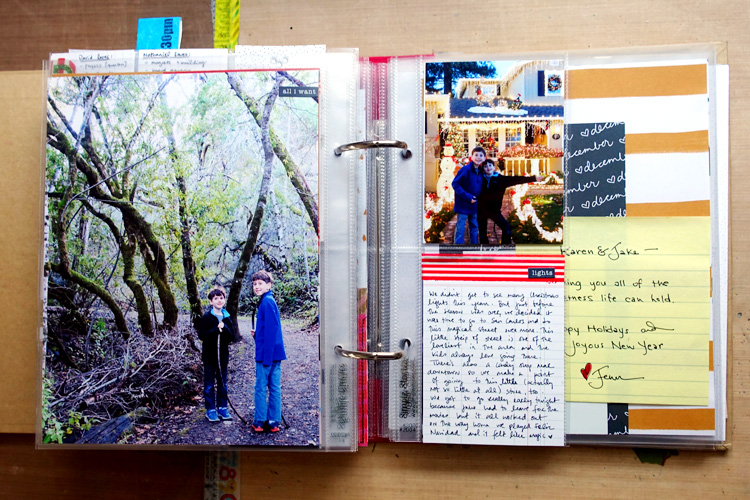 30min
David Loves:
Nathaniel Loves:
all i want
lights
We didn't get to see many Christmas
lights this year. But just before
the season was over, we decided it
was time to go to San Carlos and do
this magical street once more. This
little strip of street is one of the
loveliest in the area and the
kids always love going there.
There's also a candy cane
downtown so we make a point
of going to this little (actually
not so little at all) store, too.
We got to go really early tonight
because Jake had to leave for the
but it all worked out
on the way home we played Feliz
Navidad and it felt like magic ♥
♡december
december
Karen & Jake —
you all of the
life can hold.
Happy Holidays &
Joyous New Year
♥ Jenn
Simple Stories